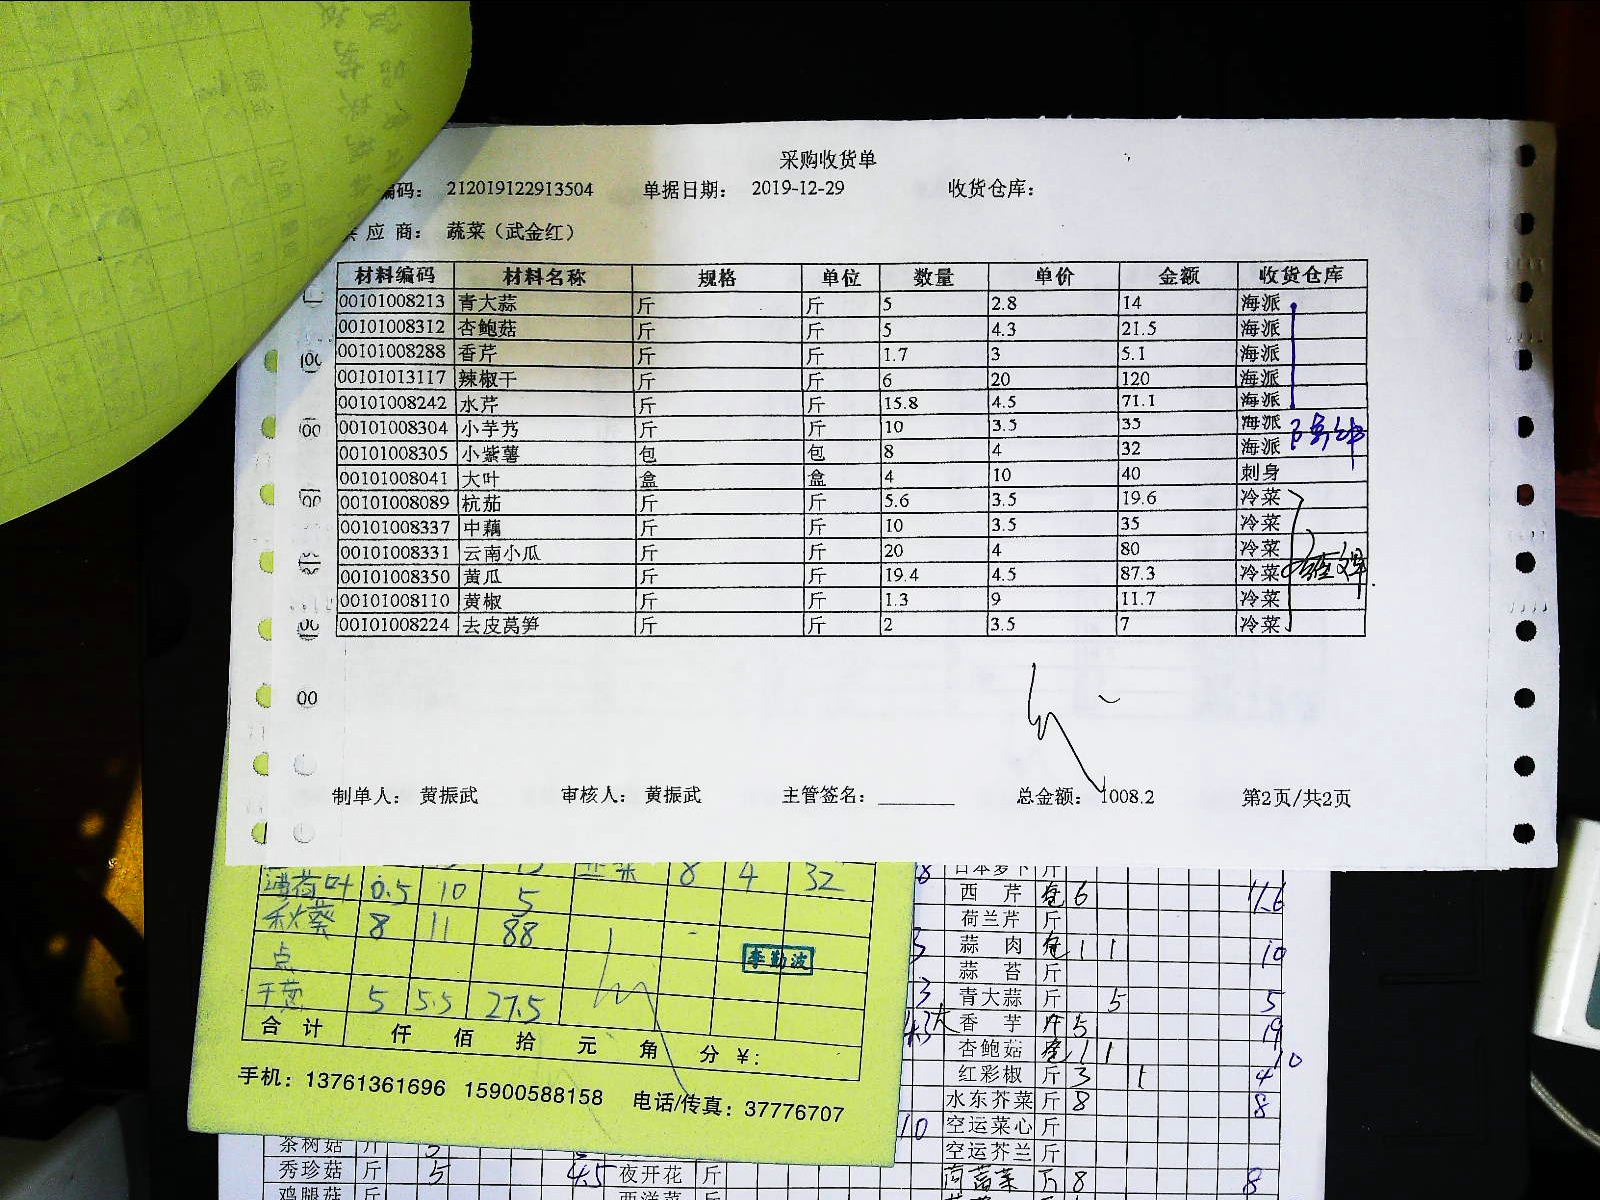 采购收货单
编码： 212019122913504 单据日期： 2019-12-29 收货仓库：
应 商： 蔬菜（武金红）
材料编码 材料名称 规格 单位 数量 单价 金额 收货仓库
00101008213 青大蒜 斤 斤 5 2.8 14 海派
00101008312 杏鲍菇 斤 斤 5 4.3 21.5 海派
00101008288 香芹 斤 斤 1.7 3 5.1 海派
00101013117 辣椒干 斤 斤 6 20 120 海派
00101008242 水芹 斤 斤 15.8 4.5 71.1 海派
00101008304 小芋艿 斤 斤 10 3.5 35 海派
00101008305 小紫薯 包 包 8 4 32 海派
00101008041 大叶 盒 盒 4 10 40 刺身
00101008089 杭茄 斤 斤 5.6 3.5 19.6 冷菜
00101008337 中藕 斤 斤 10 3.5 35 冷菜
00101008331 云南小瓜 斤 斤 20 4 80 冷菜
00101008350 黄瓜 斤 斤 19.4 4.5 87.3 冷菜
00101008110 黄椒 斤 斤 1.3 9 11.7 冷菜
00101008224 去皮莴笋 斤 斤 2 3.5 7 冷菜
制单人： 黄振武 审核人： 黄振武 主管签名： 总金额： 1008.2 第2页/共2页
8 4 32
薄荷叶 0.5 10 5
秋葵 8 11 88
点
干葱 5 5.5 27.5
李勤波
合 计 仟 佰 拾 元 角 分 ¥：
手机：13761361696 15900588158 电话/传真：37776707
日本萝卜 斤
西 芹 6 11.6
荷兰芹 斤
蒜 肉 1 1 10
蒜 苔 斤
青大蒜 斤 5 5
香 芋 斤 5 19
杏鲍菇 1 1 10
红彩椒 斤 3 1 4
水东芥菜 斤 8 8
空运菜心 斤
空运芥兰 斤
茶树菇 斤
秀珍菇 斤 5 4.5 夜开花 斤 8 8
鸡腿菇 斤 西洋菜 斤